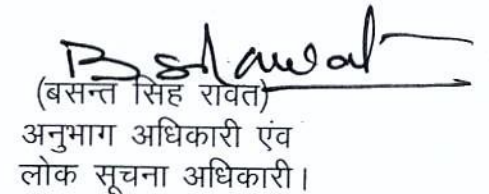 BsRawat
(बसन्त सिंह रावत)
अनुभाग अधिकारी एंव
लोक सूचना अधिकारी।